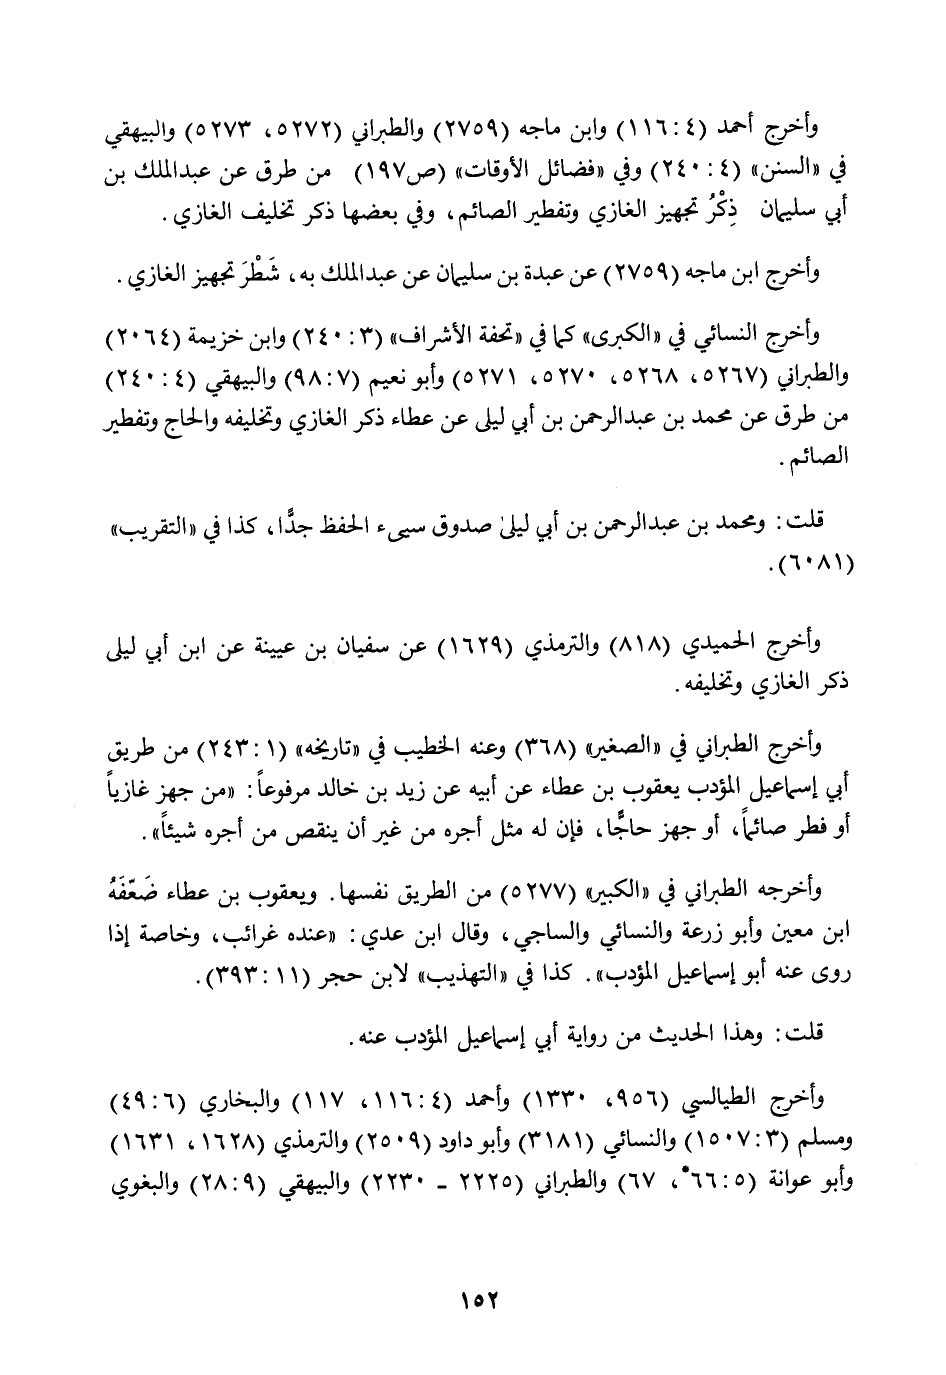 وأخرج أحمد (٤ : ١١٦) وابن ماجه (٢٧٥٩) والطبراني (٥٢٧٢، ٥٢٧٣) والبيهقي
في «السنن» (٤ : ٢٤٠) وفي «فضائل الأوقات» (ص١٩٧) من طرق عن عبدالملك بن
أبي سليمان ذِكْرُ تجهيز الغازي وتفطير الصائم، وفي بعضها ذكر تخليف الغازي.
وأخرج ابن ماجه (٢٧٥٩) عن عبدة بن سليمان عن عبدالملك به، شَطْرَ تجهيز الغازي.
وأخرج النسائي في «الكبرى» كما في «تحفة الأشراف» (٣ : ٢٤٠) وابن خزيمة (٢٠٦٤)
والطبراني (٥٢٦٧، ٥٢٦٨، ٥٢٧٠، ٥٢٧١) وأبو نعيم (٧ : ٩٨) والبيهقي (٤ : ٢٤٠)
من طرق عن محمد بن عبدالرحمن بن أبي ليلى عن عطاء ذكر الغازي وتخليفه والحاج وتفطير
الصائم.
قلت: ومحمد بن عبدالرحمن بن أبي ليلىٰ صدوق سيىء الحفظ جدًّا، كذا في «التقريب»
(٦٠٨١).
وأخرج الحميدي (٨١٨) والترمذي (١٦٢٩) عن سفيان بن عيينة عن ابن أبي ليلى
ذكر الغازي وتخليفه.
وأخرج الطبراني في «الصغير» (٣٦٨) وعنه الخطيب في «تاريخه» (١ : ٢٤٣) من طريق
أبي إسماعيل المؤدب يعقوب بن عطاء عن أبيه عن زيد بن خالد مرفوعاً: «من جهز غازياً
أو فطر صائماً، أو جهز حاجًّا، فإن له مثل أجره من غير أن ينقص من أجره شيئاً».
وأخرجه الطبراني في «الكبير» (٥٢٧٧) من الطريق نفسها. ويعقوب بن عطاء ضَعّفَهُ
ابن معين وأبو زرعة والنسائي والساجي، وقال ابن عدي: «عنده غرائب، وخاصة إذا
روى عنه أبو إسماعيل المؤدب». كذا في «التهذيب» لابن حجر (١١ : ٣٩٣).
قلت: وهذا الحديث من رواية أبي إسماعيل المؤدب عنه.
وأخرج الطيالسي (٩٥٦، ١٣٣٠) وأحمد (٤ : ١١٦، ١١٧) والبخاري (٦ : ٤٩)
ومسلم (٣ : ١٥٠٧) والنسائي (٣١٨١) وأبو داود (٢٥٠٩) والترمذي (١٦٢٨، ١٦٣١)
وأبو عوانة (٥ : ٦٦، ٦٧) والطبراني (٢٢٢٥ - ٢٢٣٠) والبيهقي (٩ : ٢٨) والبغوي
١٥٢